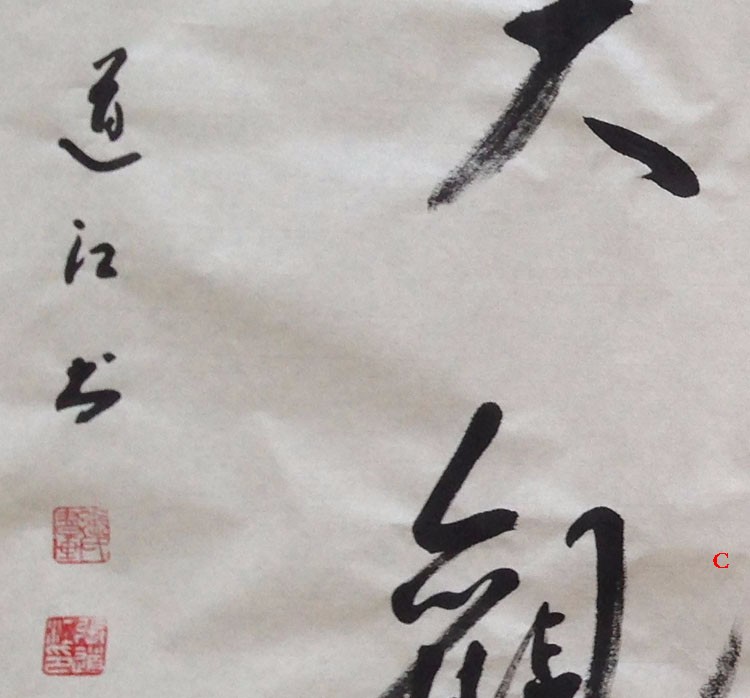 大觀
道江书
C